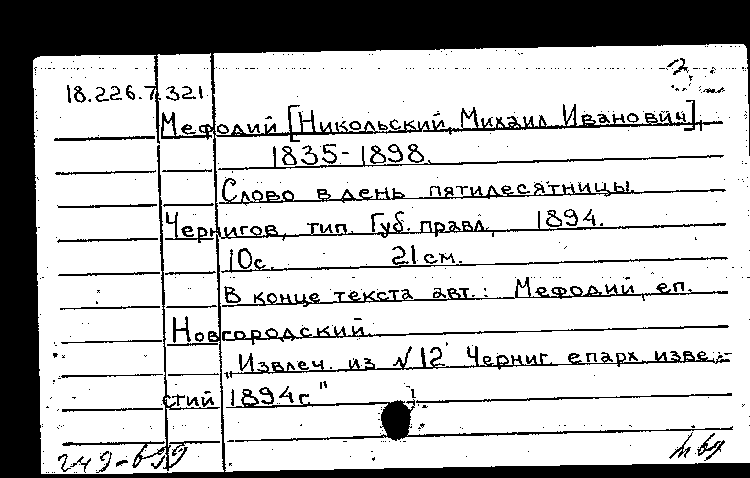 18.226.7.321
Мефодий [Никольский, Михаил Иванович],
1835-1898.
Слово в день пятидесятницы.
Чернигов, тип. Губ. правл., 1894.
10с. 21см.
В конце текста авт.: Мефодий, еп.
Новгородский.
„Извлеч. из №12 Черниг. епарх. изве-
стий 1894г."
249-699